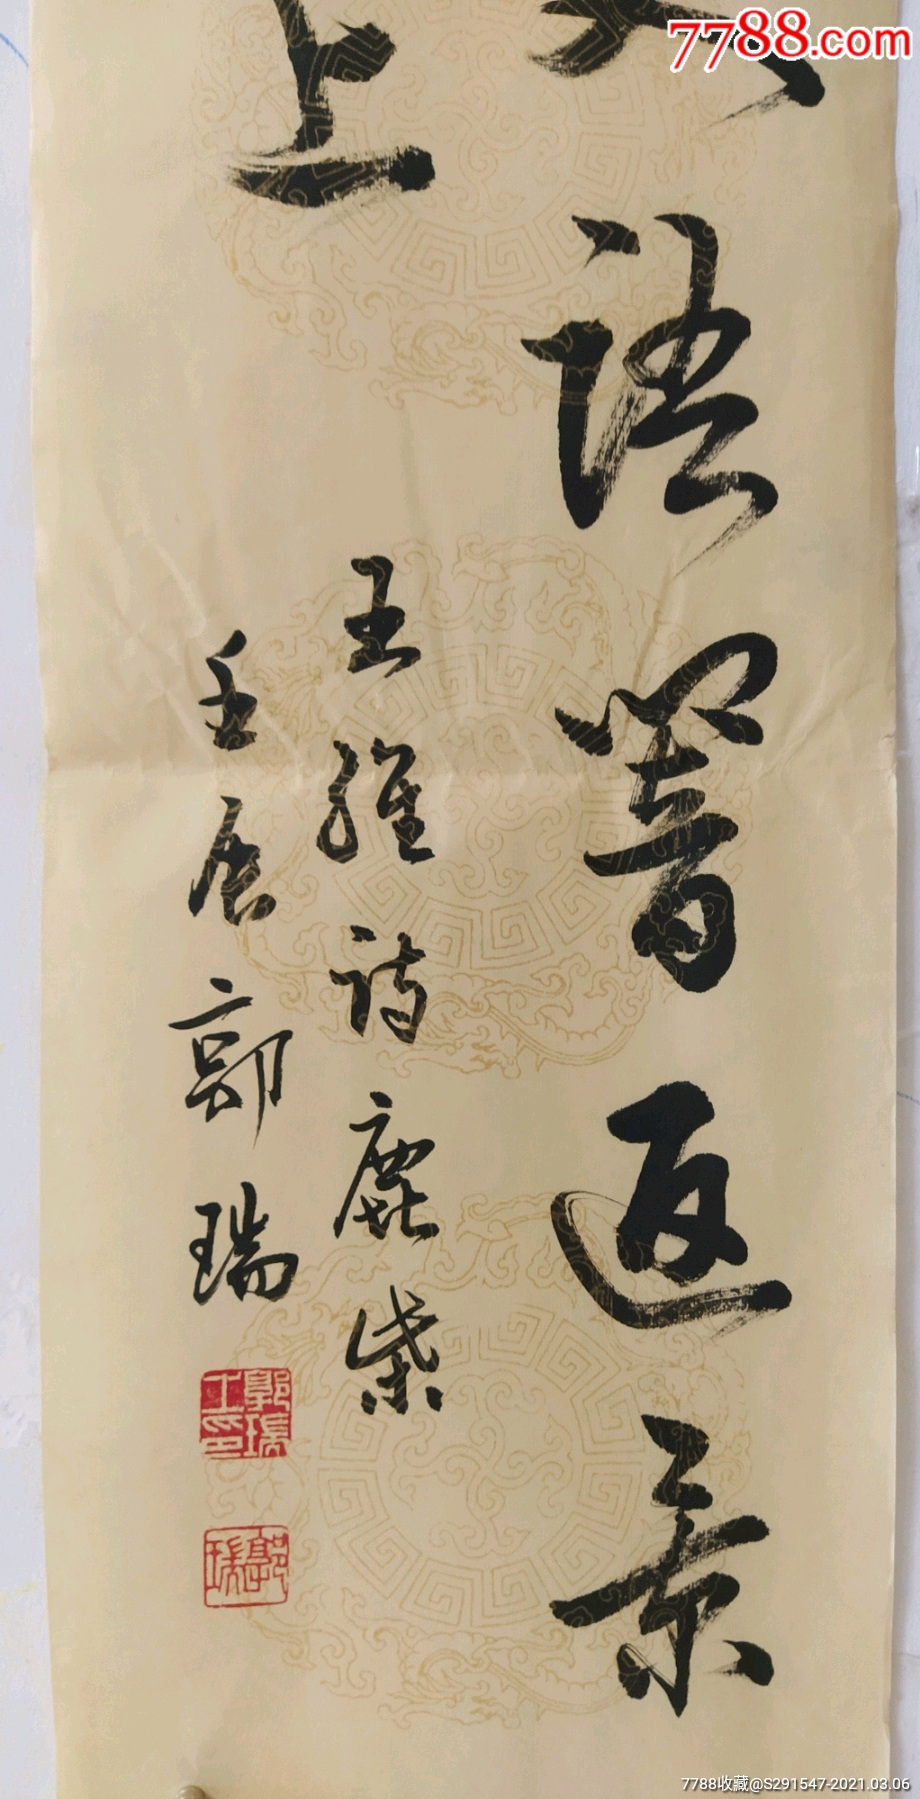 7788.com
人語響返景
上
王維詩鹿柴
壬辰郭瑞
郭瑞之印
郭瑞
7788收藏@S291547-2021.03.06